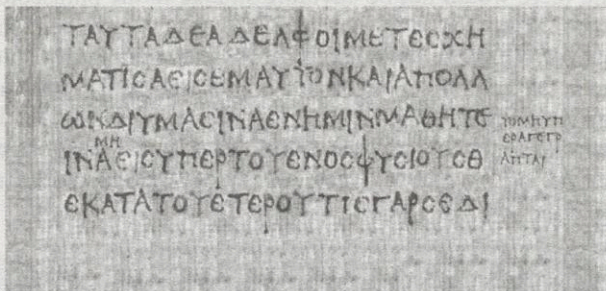 ΤΑΥΤΑΔΕΑΔΕΛΦΟΙΜΕΤΕϹΧΗ
ΜΑΤΙϹΑΕΙϹΕΜΑΥΤΟΝΚΑΙΑΠΟΛΛ
ΩΝΔΙΥΜΑϹΙΝΑΕΝΗΜΙΝΜΑΘΗΤΕ
ΜΗ
ΙΝΑΕΙϹΥΠΕΡΤΟΥΕΝΟϹΦΥϹΙΟΥϹΘ
ΕΚΑΤΑΤΟΥΕΤΕΡΟΥΤΙϹΓΑΡϹΕΔΙ
ΤΟΜΗΥΠ
ΕΡΑΓΕΓΡ
ΑΠΤΑΙ